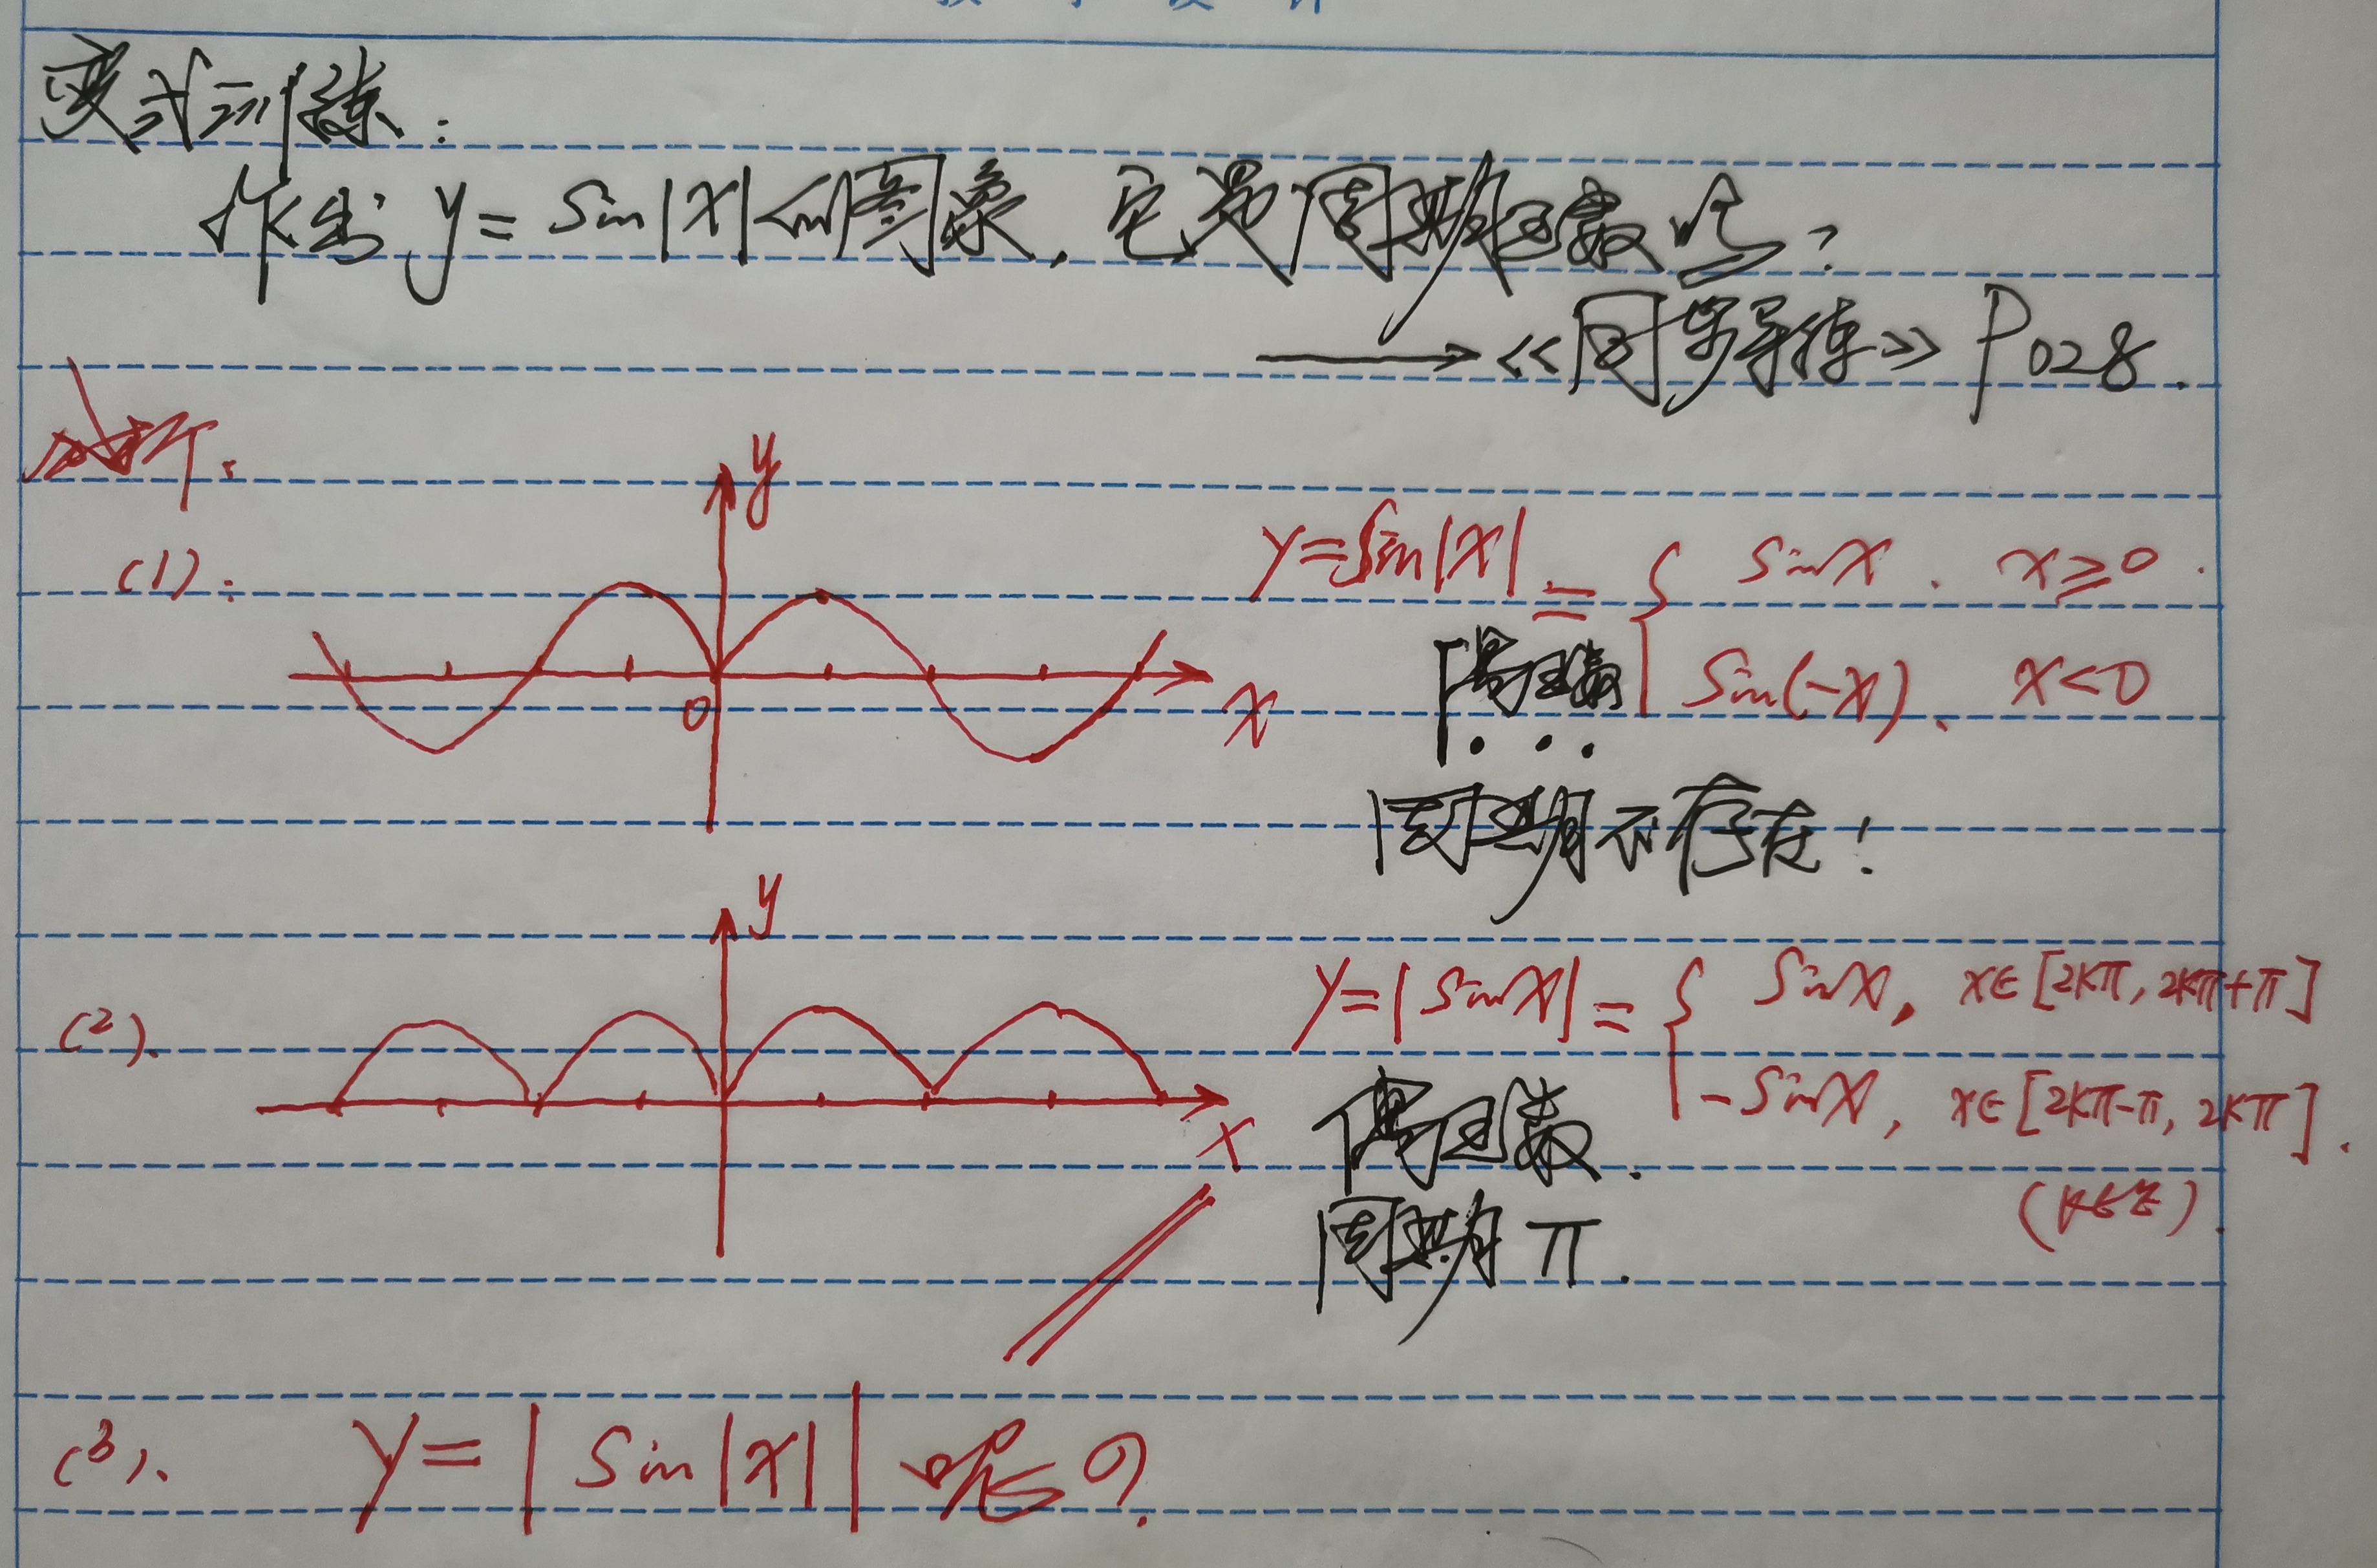 教学设计
变式训练:
作出 y = sin|x| 的图象, 它是周期函数吗?
→ 《同步导练》 P028.
解析:
(1):
y
O
x
y = sin|x| = { sinx . x≥0 .
sin(-x) 、 x<0
偶函数
周期不存在!
(2).
y
x
y = |sinx| = { sinx, x∈[2kπ, 2kπ+π]
-sinx, x∈[2kπ-π, 2kπ].
(k∈Z).
偶函数.
周期 π.
(3). y = |sin|x|| 呢?